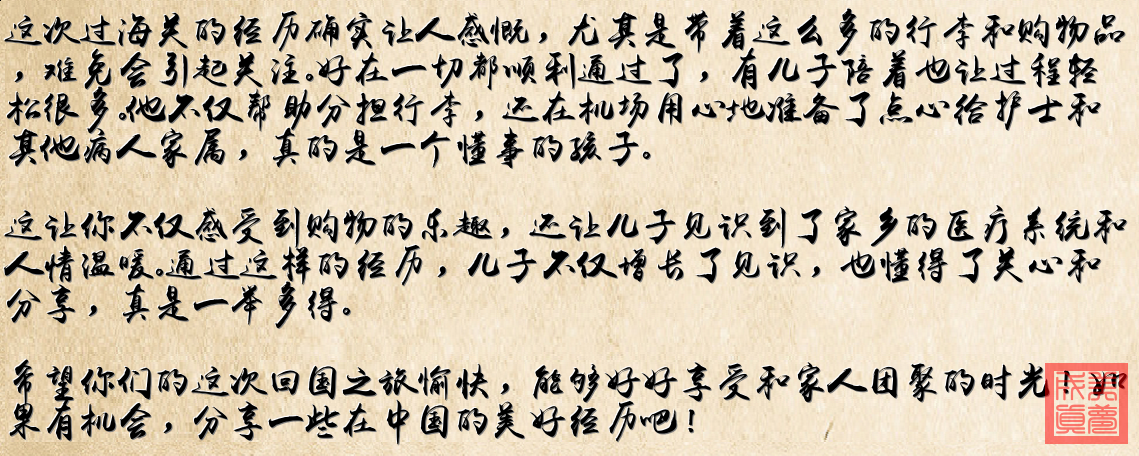 这次过海关的经历确实让人感慨，尤其是带着这么多的行李和购物品
，难免会引起关注。好在一切都顺利通过了，有儿子陪着也让过程轻
松很多。他不仅帮助分担行李，还在机场用心地准备了点心给护士和
其他病人家属，真的是一个懂事的孩子。
这让你不仅感受到购物的乐趣，还让儿子见识到了家乡的医疗系统和
人情温暖。通过这样的经历，儿子不仅增长了见识，也懂得了关心和
分享，真是一举多得。
希望你们的这次回国之旅愉快，能够好好享受和家人团聚的时光！如
果有机会，分享一些在中国的美好经历吧！